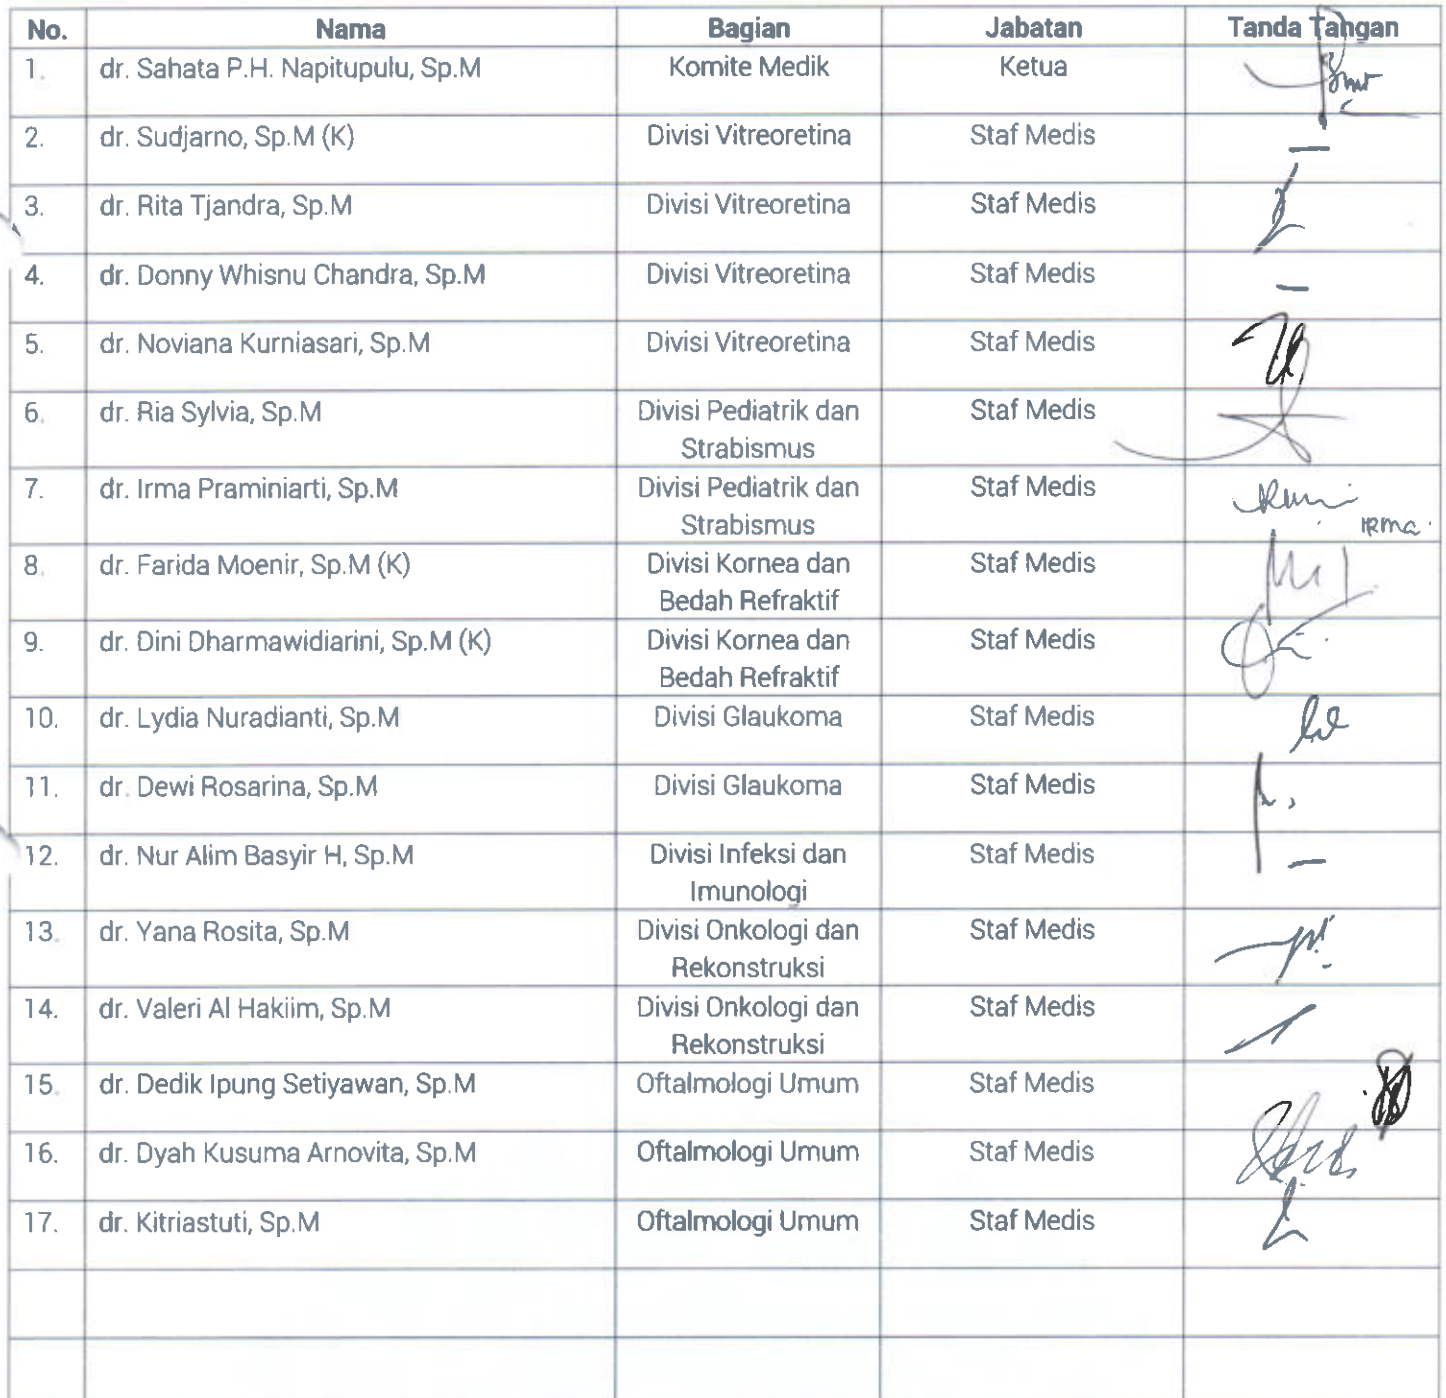 No. Nama Bagian Jabatan Tanda Tangan
1. dr. Sahata P.H. Napitupulu, Sp.M Komite Medik Ketua
2. dr. Sudjarno, Sp.M (K) Divisi Vitreoretina Staf Medis –
3. dr. Rita Tjandra, Sp.M Divisi Vitreoretina Staf Medis
4. dr. Donny Whisnu Chandra, Sp.M Divisi Vitreoretina Staf Medis –
5. dr. Noviana Kurniasari, Sp.M Divisi Vitreoretina Staf Medis
6. dr. Ria Sylvia, Sp.M Divisi Pediatrik dan Staf Medis
Strabismus
7. dr. Irma Praminiarti, Sp.M Divisi Pediatrik dan Staf Medis
Strabismus IRMA.
8. dr. Farida Moenir, Sp.M (K) Divisi Kornea dan Staf Medis
Bedah Refraktif
9. dr. Dini Dharmawidiarini, Sp.M (K) Divisi Kornea dan Staf Medis
Bedah Refraktif
10. dr. Lydia Nuradianti, Sp.M Divisi Glaukoma Staf Medis
11. dr. Dewi Rosarina, Sp.M Divisi Glaukoma Staf Medis
12. dr. Nur Alim Basyir H, Sp.M Divisi Infeksi dan Staf Medis –
Imunologi
13. dr. Yana Rosita, Sp.M Divisi Onkologi dan Staf Medis
Rekonstruksi
14. dr. Valeri Al Hakiim, Sp.M Divisi Onkologi dan Staf Medis
Rekonstruksi
15. dr. Dedik Ipung Setiyawan, Sp.M Oftalmologi Umum Staf Medis
16. dr. Dyah Kusuma Arnovita, Sp.M Oftalmologi Umum Staf Medis
17. dr. Kitriastuti, Sp.M Oftalmologi Umum Staf Medis